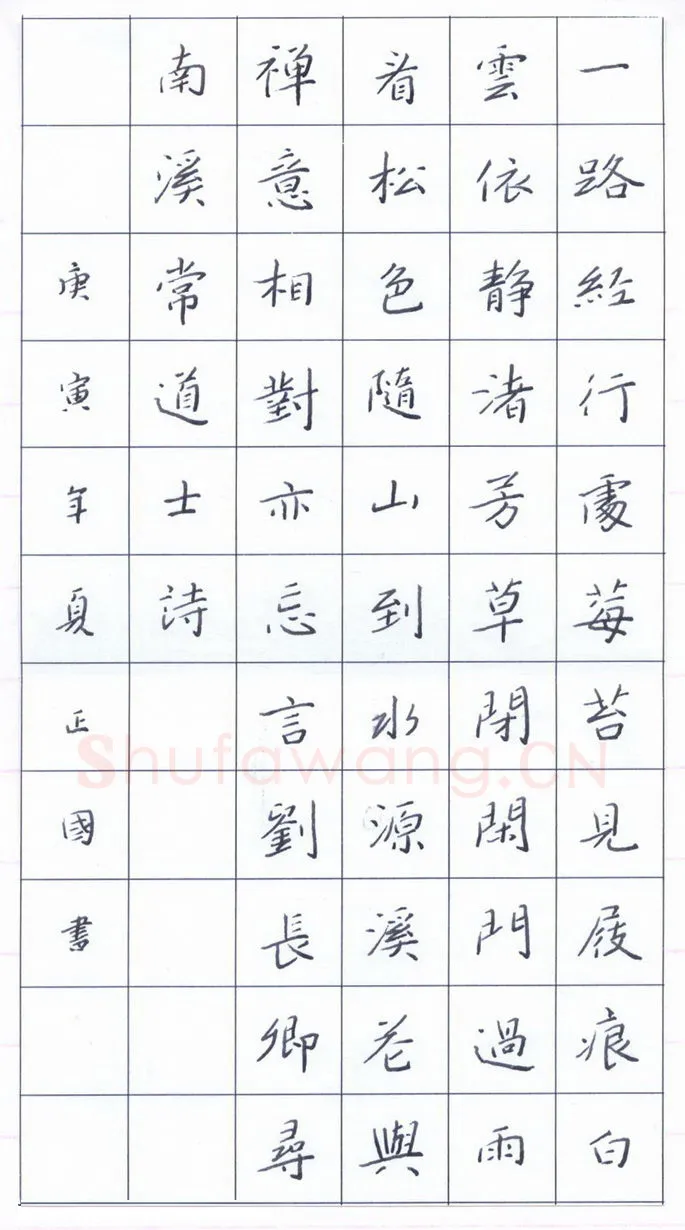 一路經行處莓苔見屐痕白
雲依靜渚芳草閉閑門過雨
看松色隨山到水源溪花與
禅意相對亦忘言劉長卿尋
南溪常道士詩
庚寅年夏正國書
Shufawang.CN